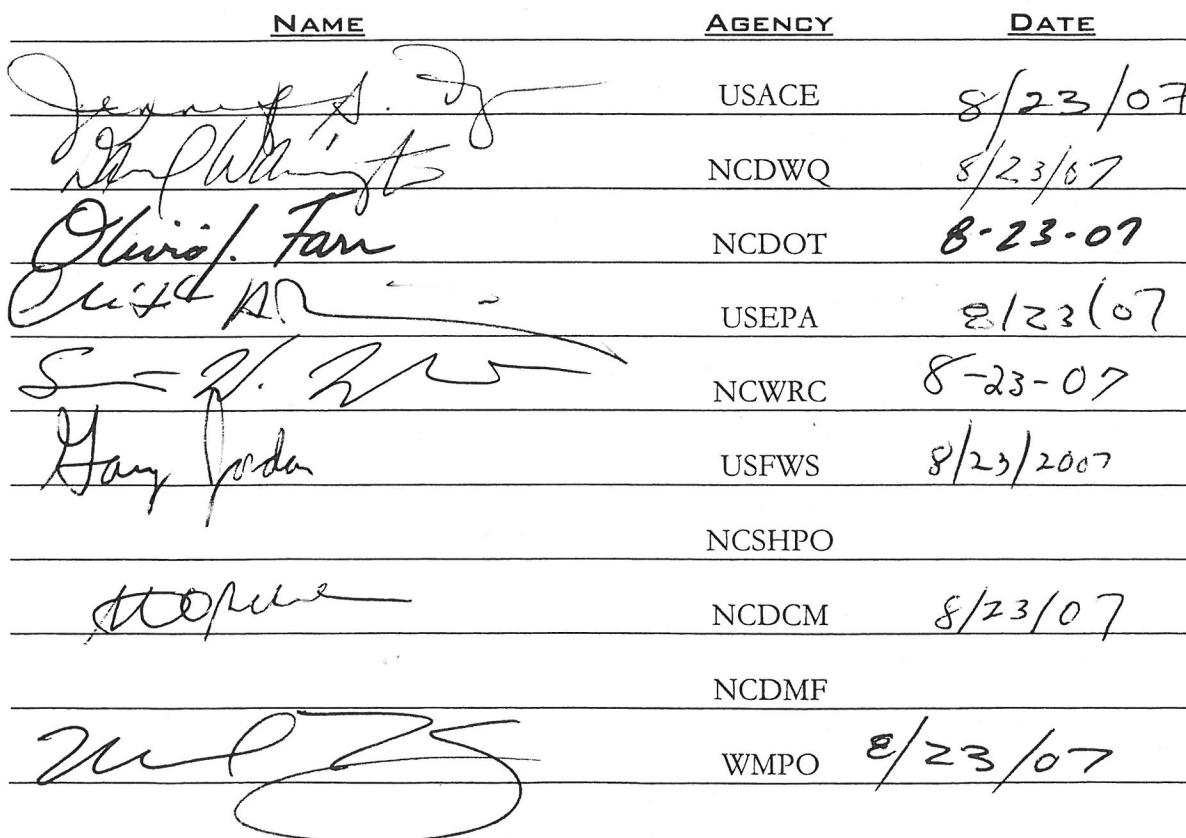 NAME AGENCY DATE
USACE 8/23/07
NCDWQ 8/23/07
Olivia J. Farr NCDOT 8-23-07
USEPA 8/23/07
NCWRC 8-23-07
Gary Jordan USFWS 8/23/2007
NCSHPO
NCDCM 8/23/07
NCDMF
WMPO 8/23/07